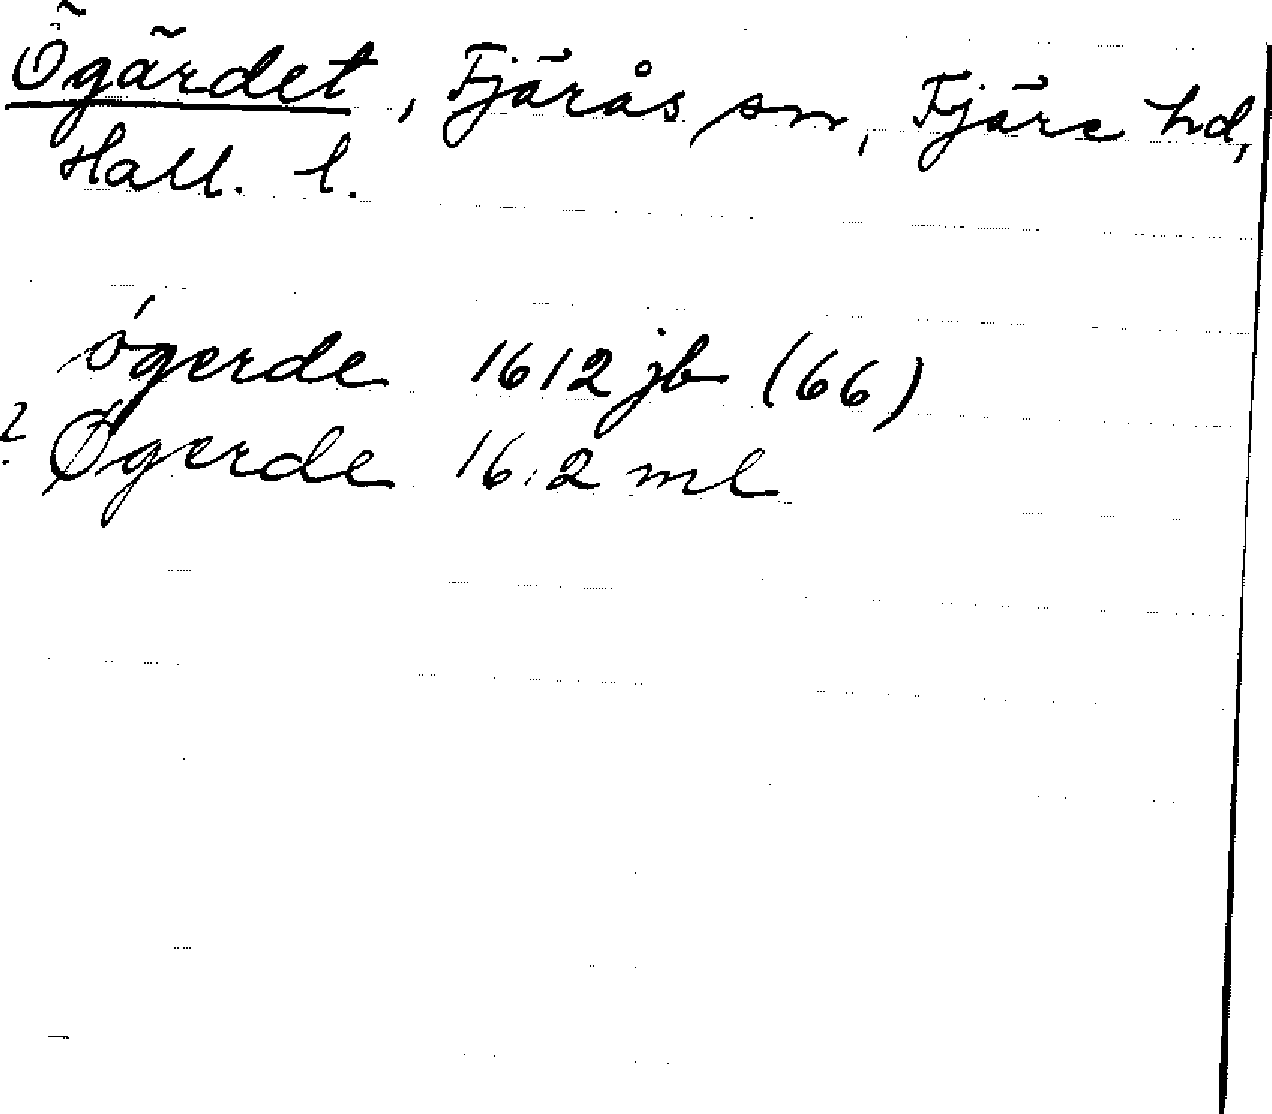 Ögärdet, Fjärås sn, Fjäre hd,
Hall. l.
ógerde 1612 jb (66)
? Øgerde 1612 ml